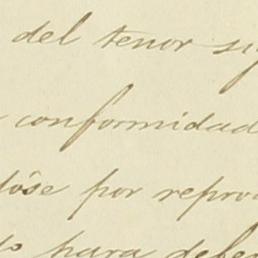 del tenor si
conformidad
dóse por repro
para defen